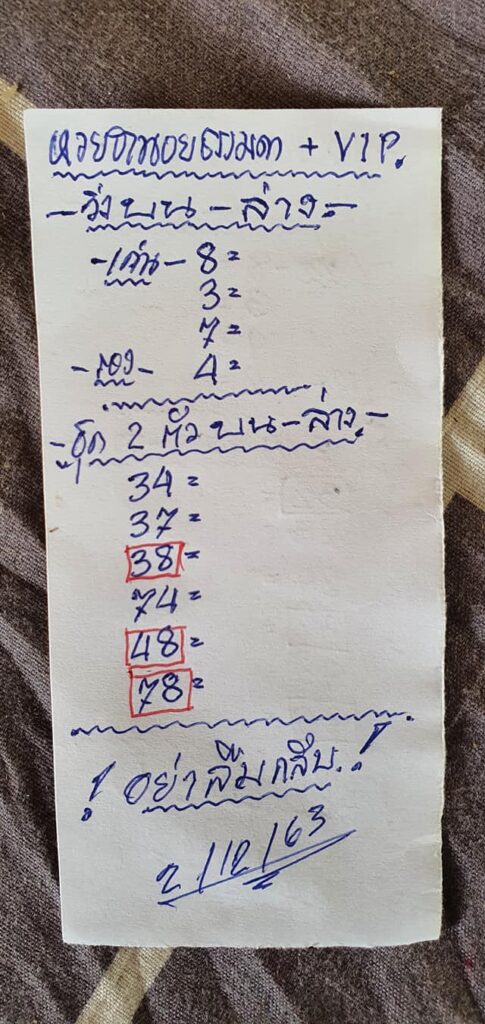 หวยฮานอยธรรมดา + VIP.
-วิ่งบน-ล่าง-
-เด่น- 8=
3=
7=
-รอง- 4=
-ชุด 2 ตัวบน-ล่าง-
34=
37=
38=
74=
48=
78=
! อย่าลืมกลับ. !
2/12/63